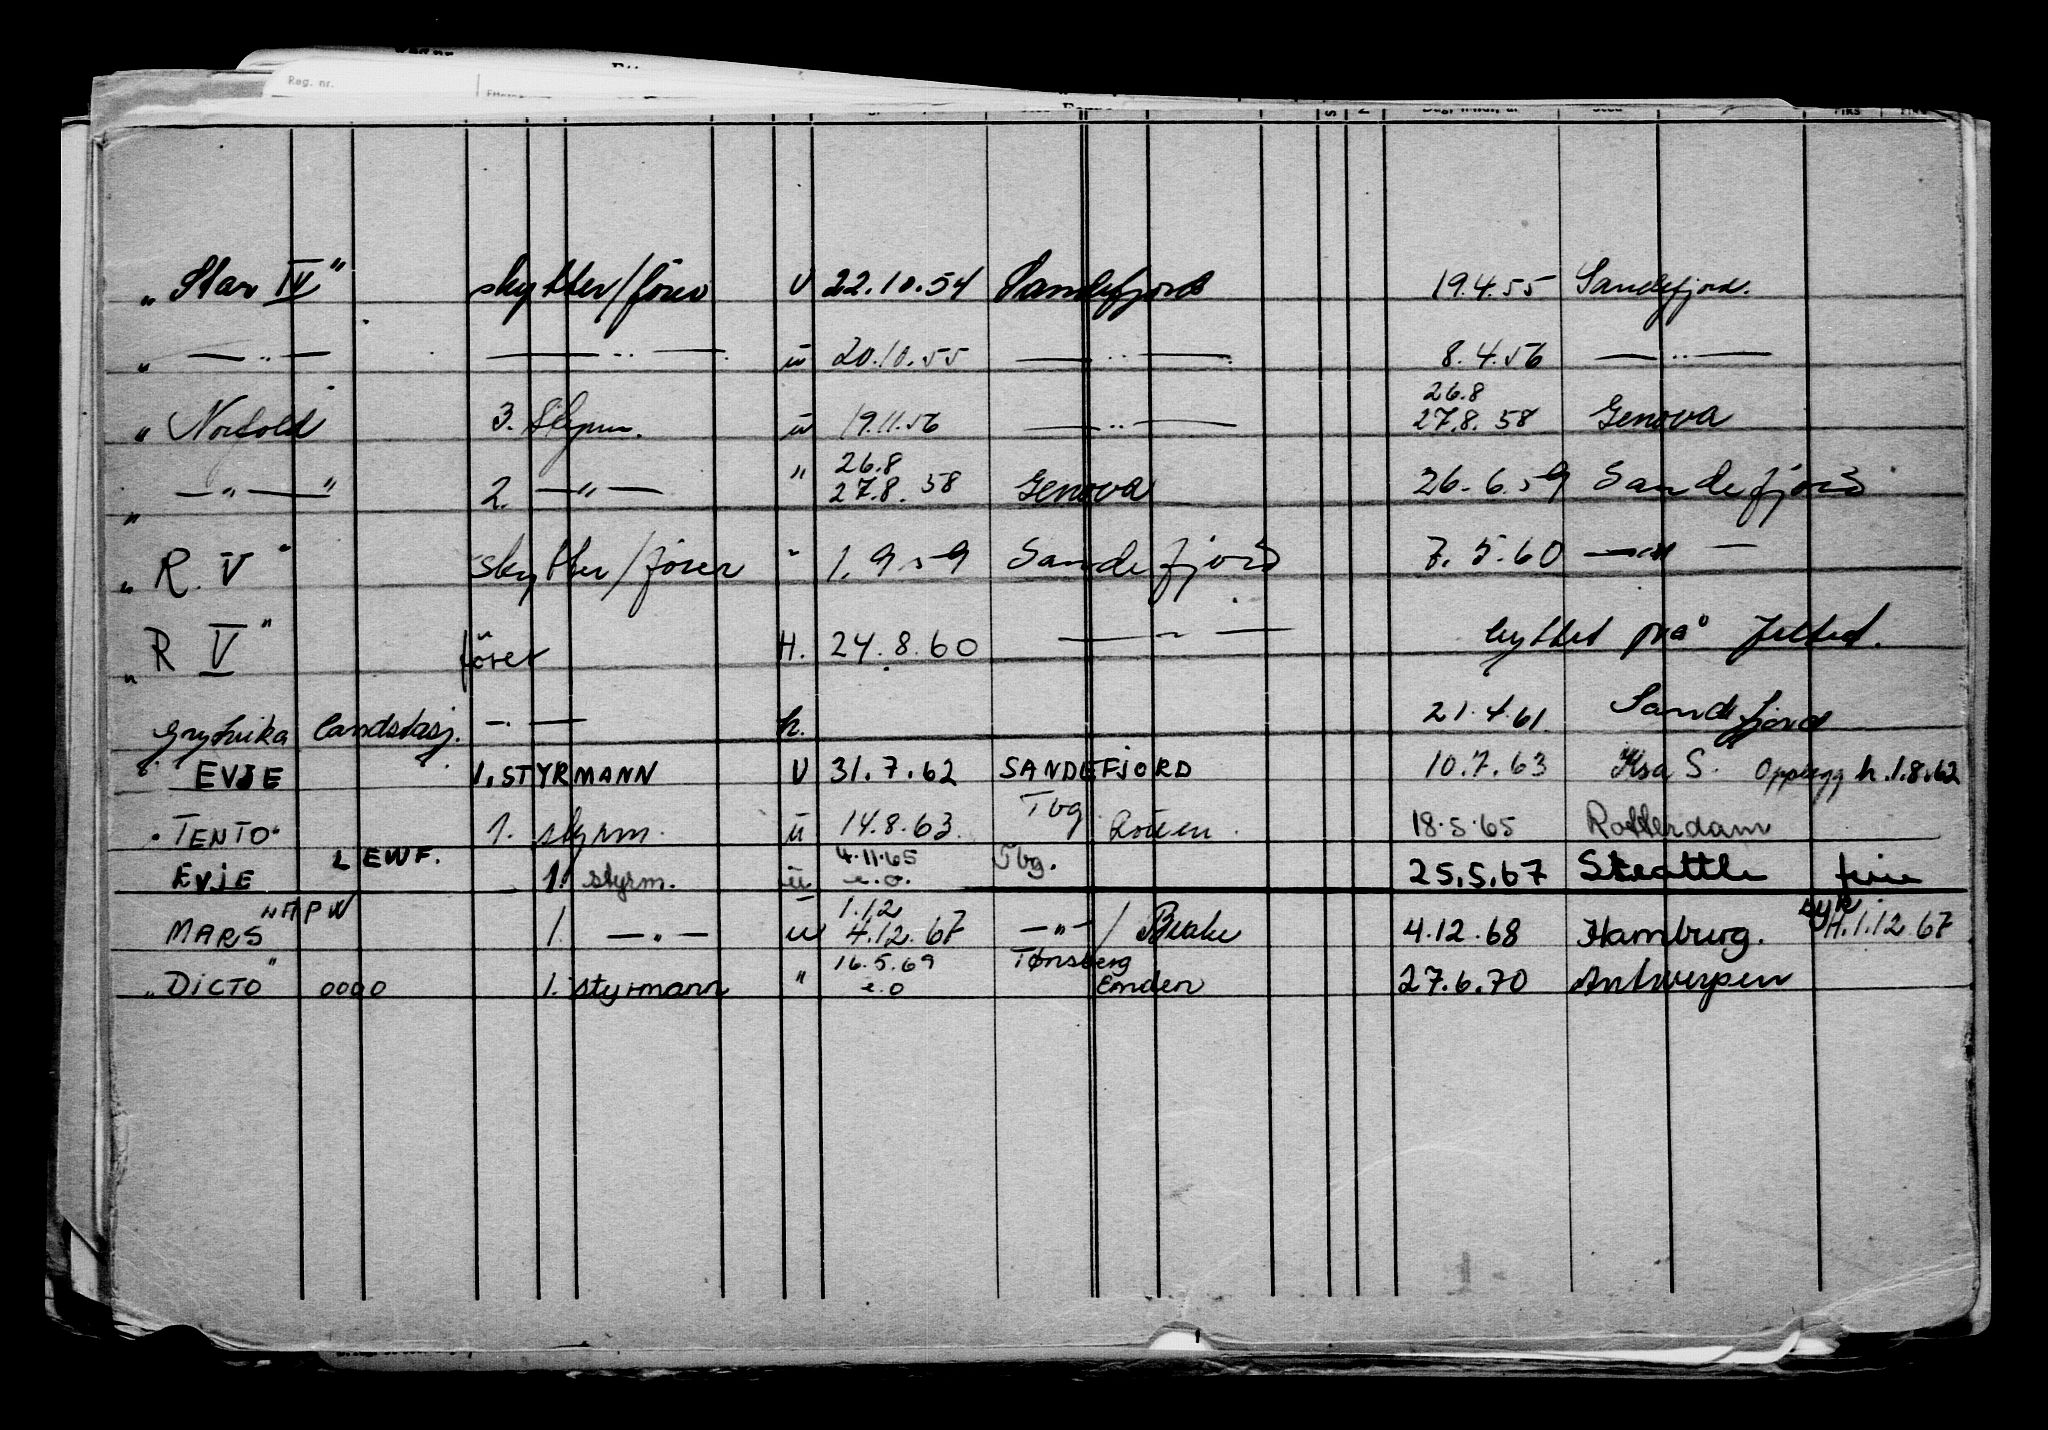 Reg. nr.
„Star IV" skytter/förer U 22.10.54 Sandefjord 19.4.55 Sandefjord.
„ — „ — — „ — u 20.10.55 — „ — 8.4.56 — „ —
26.8
„Norfold" 3. Styrm. u 19.11.56 — „ — 27.8.58 Genova
26.8
„ — " — " 2. — " — " 27.8.58 Genova 26.6.59 Sandefjord
„R. V" skytter/förer " 1.9.59 Sandefjord 7.5.60 — " —
„R V" förer H. 24.8.60 — " — byttet på feltet.
Grytvika landstasj. — . — h. 21.4.61. Sandefjord
EVJE 1. STYRMANN U 31.7.62 SANDEFJORD 10.7.63 S. Opplegg h. 1.8.62
"TENTO" 1. styrm. u 14.8.63. Tbg Rouen. 18.5.65 Rotterdam
EVJE LEWF. 1. styrm. u 4.11.65 e.o. Tbg. 25.5.67 Seattle ferie
1.12
MARS HAPW 1. — " — u 4.12.67 — " — / 4.12.68 Hamburg. H. 1.12.67
16.5.69 Tønsberg
„DICTO" OOOO 1. styrmann " e.o Emden 27.6.70 Antwerpen